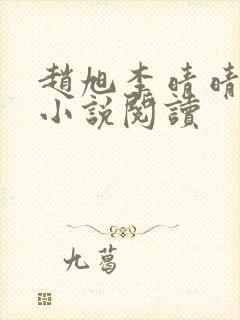 趙旭李晴晴
小說閱讀
九葛